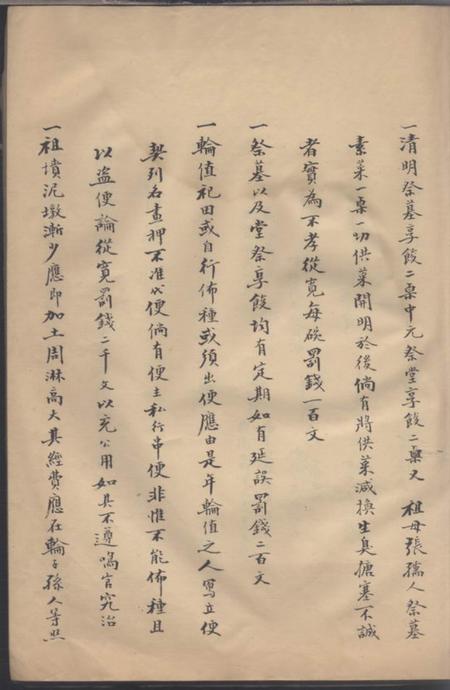 一清明祭墓享餕二棹中元祭堂享餕二棹又 祖母張孺人祭墓
素菜一桌一切供菜開明於後倘有將供菜減換生臭搪塞不誠
者實為不孝從寬每碗罰錢一百文
一祭墓以及堂祭享餕均有定期如有延誤罰錢二百文
一輪值祀田或自行佈種或須出便應由是年輪值之人寫立便
契列名畫押不准代便倘有便主私行串便非惟不能佈種且
以盜便論從寬罰錢二千文以充公用如其不遵鳴官究治
一祖墳泥墩漸少應即加土周淋高大其經費應在輪子孫人等照